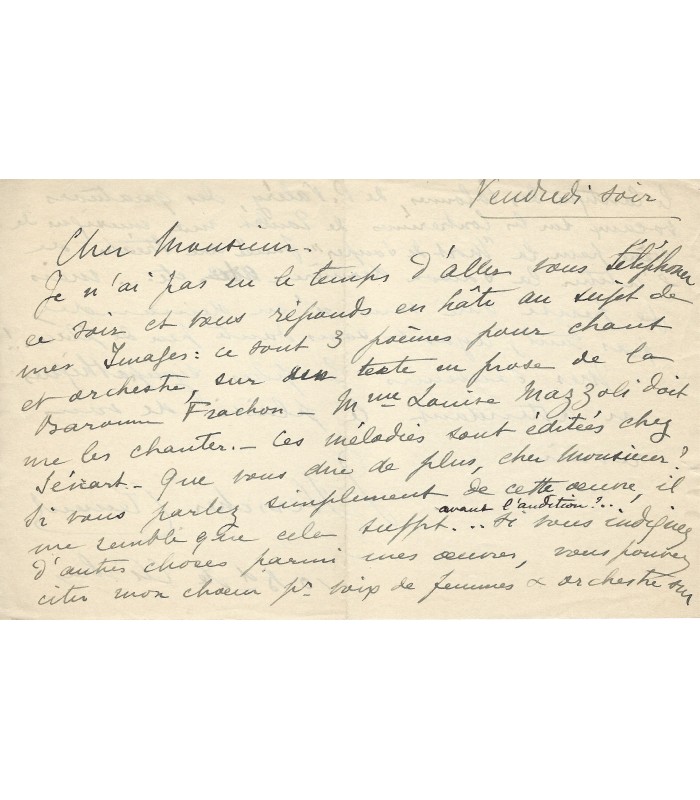 Vendredi soir
Cher Monsieur -
Je n'ai pas eu le temps d'aller vous téléphoner
ce soir et vous réponds en hâte au sujet de
mes Images: ce sont 3 poèmes pour chant
et orchestre, sur texte en prose de la
Baronne Frachon - Mme Louise Mazzoli doit
me les chanter. - Ces mélodies sont éditées chez
Sénart - Que vous dire de plus, cher Monsieur?
Si vous parlez simplement de cette œuvre, il
avant l'audition?..
me semble que cela suffit... Si vous indiquez
d'autres choses parmi mes œuvres, vous pouvez
citer mon chœur pr voix de femmes & orchestre sur